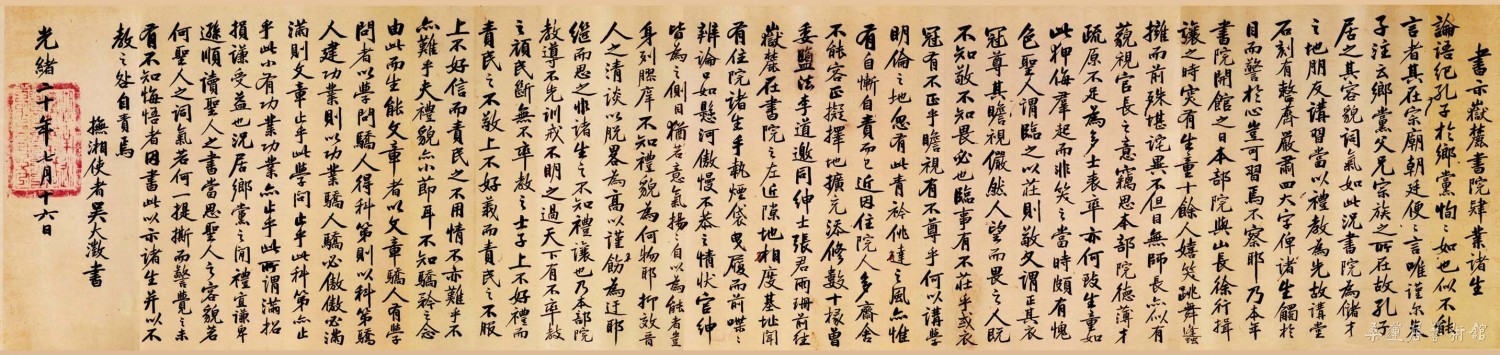 書示嶽麓書院肄業諸生
論語紀孔子於鄉黨恂恂如也似不能
言者其在宗廟朝廷便便言唯謹尔朱
子注云鄉黨父兄宗族之所在故孔子
居之其容貌詞氣如此況書院為儲才
之地朋友講習當以禮教為先故講堂
石刻有整齊嚴肅四大字俾諸生觸於
目而警於心豈可習焉不察耶乃本年
書院開館之日本部院與山長徐行揖
讓之時突有生童十餘人嬉笑跳舞蠭
擁而前殊堪詫異不但目無師長亦似有
藐視官長之意竊思本部院德薄才
疏原不足為多士表率亦何致生童如
此狎侮羣起而非笑之當時頗有愧
色聖人謂臨之以莊則敬又謂正其衣
冠尊其瞻視儼然人望而畏之人既
不知敬不知畏必也臨事有不莊乎或衣
冠有不正乎瞻視有不尊乎何以講學
明倫之地忽有此青衿佻達之風亦惟
有自慚自責而已近因住院人多齋舍
不能容正擬擇地擴充添修數十椽曾
委鹽法李道邀同紳士張君雨珊前往
嶽麓在書院之左近隙地相度基址聞
有住院諸生手執煙袋曳履而前喋喋
辨論口如懸河傲慢不恭之情狀官紳
皆為之側目猶若意氣揚揚自以為能者豈
身列膠庠不知禮貌為何物耶抑效晉
人之清談以脫畧為高以謹飭為迂耶
繼而思之非諸生之不知禮讓也乃本部院
教導不先訓戒不明之過天下有不率教
之頑民斷無不率教之士子上不好禮而
責民之不敬上不好義而責民之不服
上不好信而責民之不用情不亦難乎不
亦難乎夫禮貌亦小節耳不知驕矜之念
由此而生能文章者以文章驕人有學
問者以學問驕人得科第則以科第驕
人建功業則以功業驕人驕必傲傲必滿
滿則文章止乎此學問止乎此科第亦止
乎此小有功業功業亦止乎此所謂滿招
損謙受益也況居鄉黨之間禮宜謙卑
遜順讀聖人之書當思聖人之容貌若
何聖人之詞氣若何一提撕而警覺之未
有不知悔悟者因書此以示諸生并以不
教之咎自責焉
撫湘使者吳大澂書
光緒二十年七月十六日